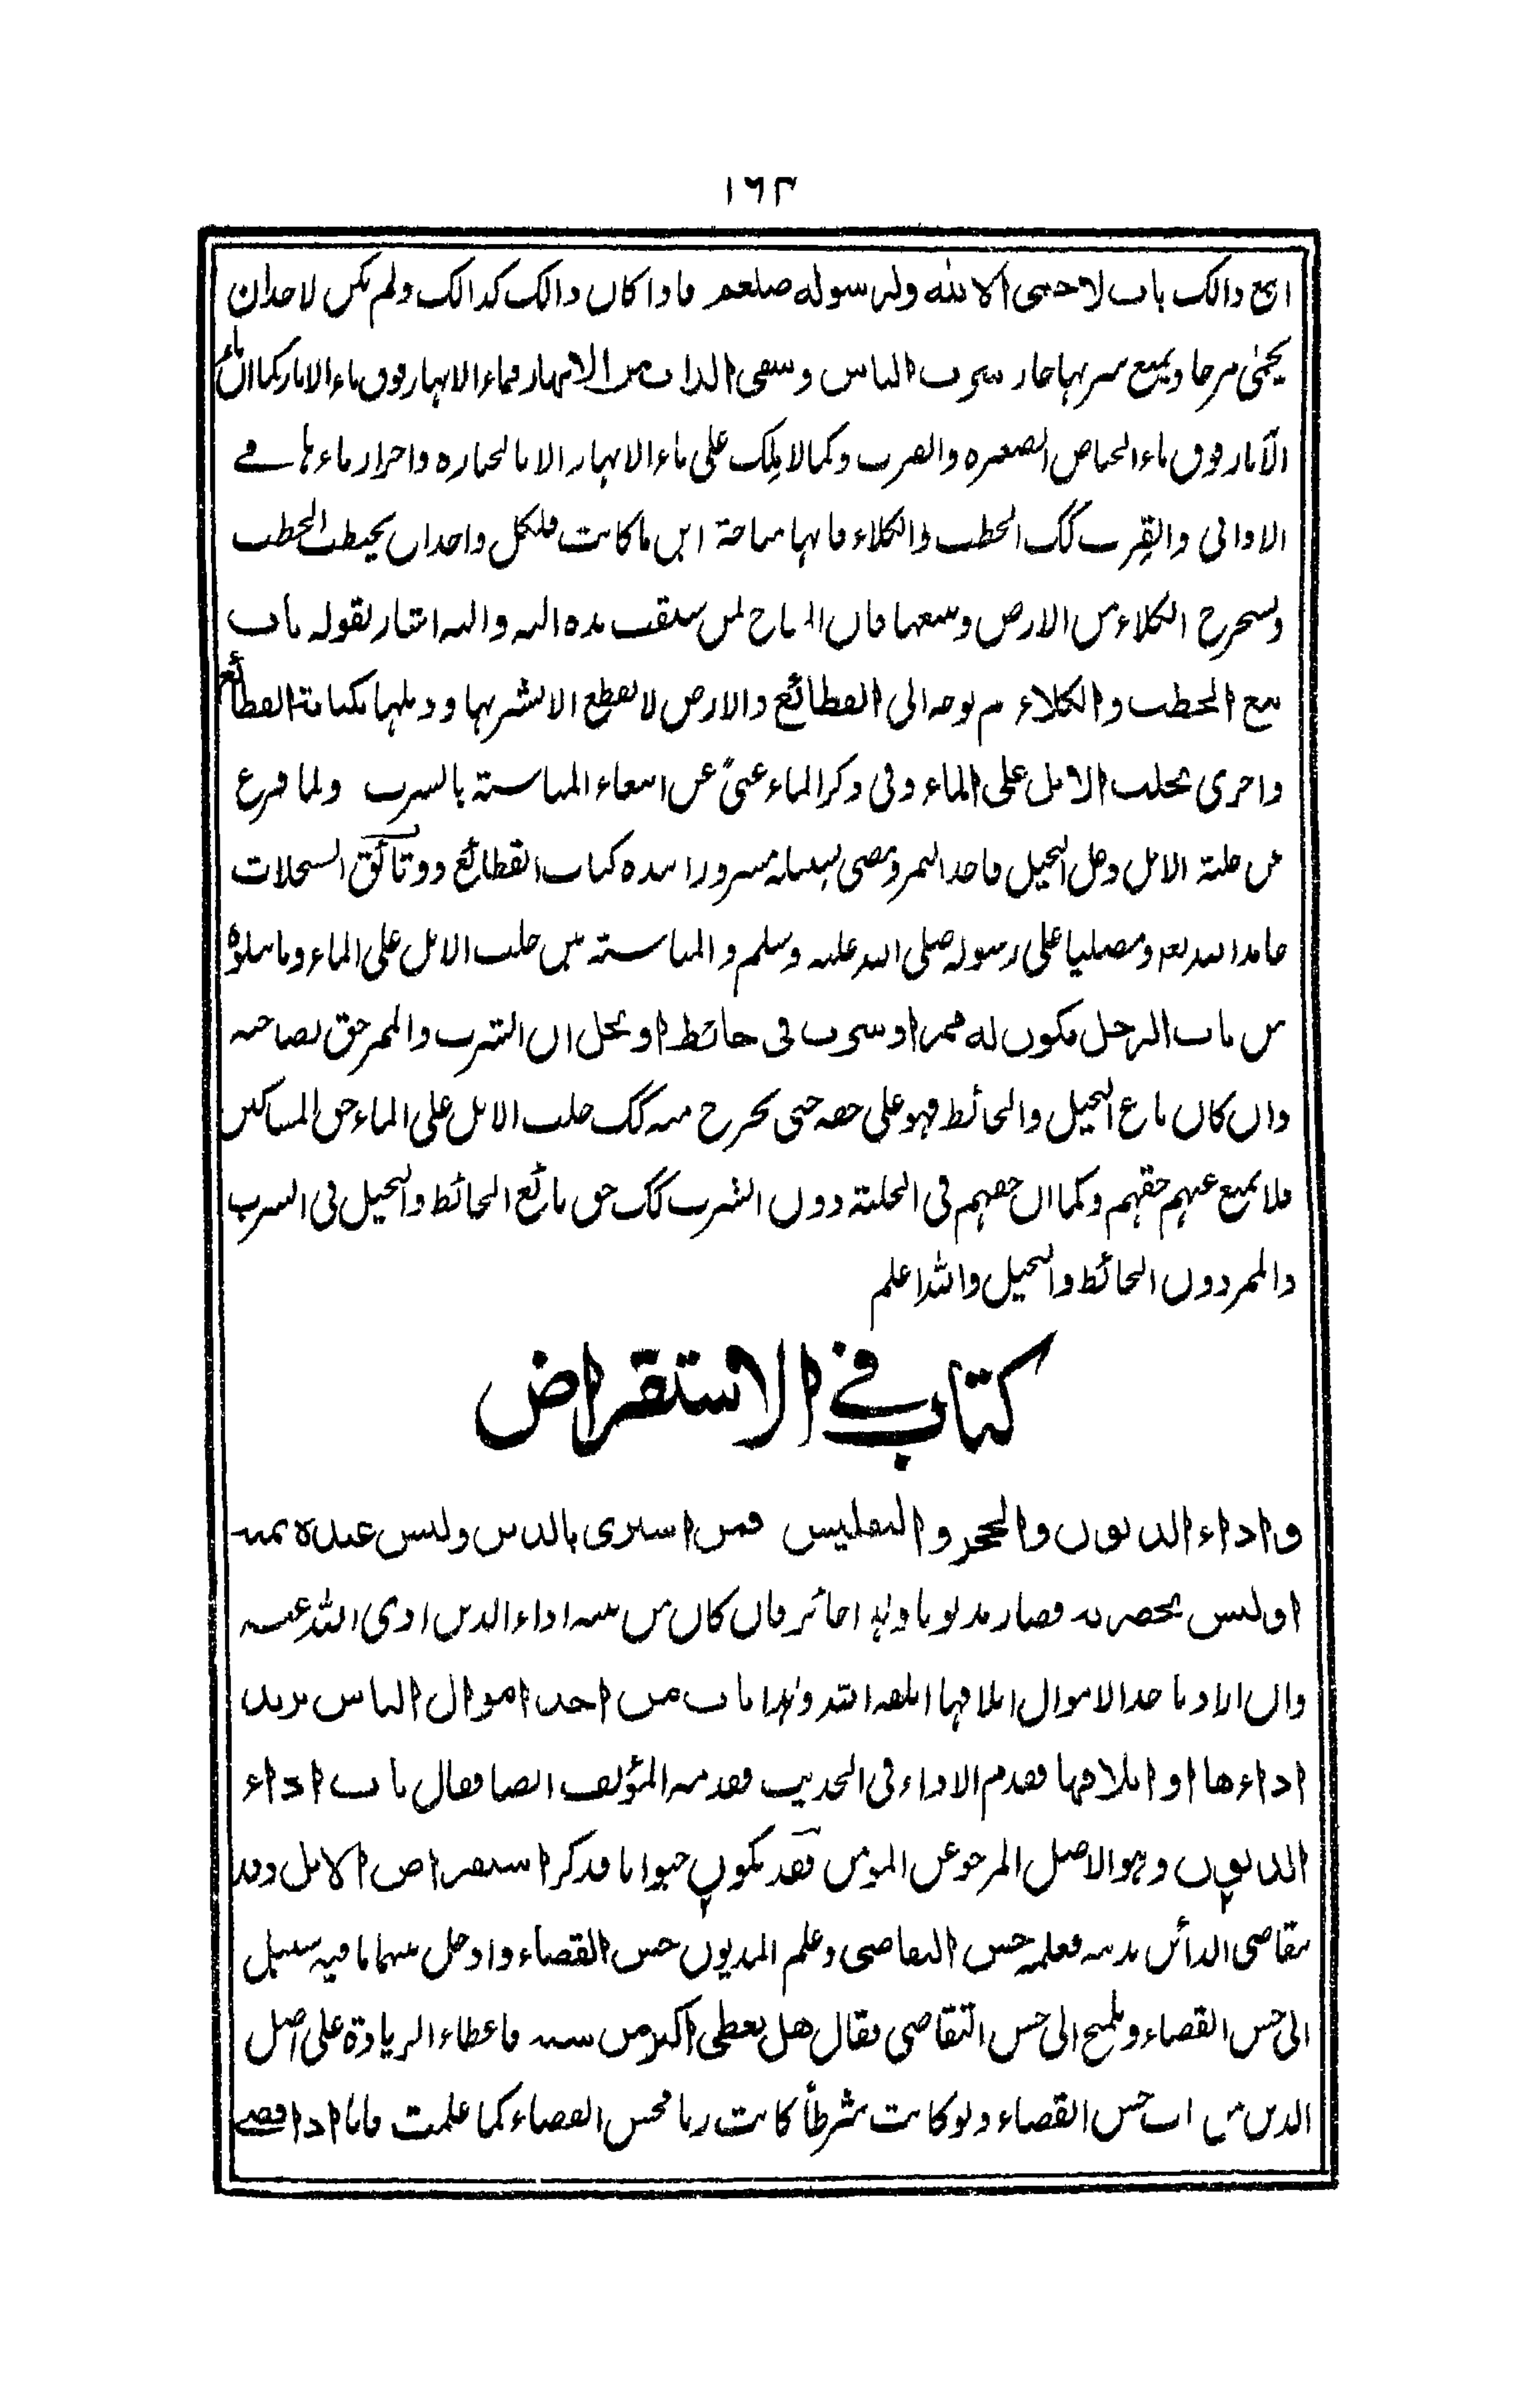 ١٦٣
اتبع ذالك باب لا حمى الا لله ولرسوله صلعم فاذا كان ذالك كذالك ولم يكن لاحد ان
يحمى مرجا ويمنع شربها جاز شرب الناس وسقى الدواب من الانهار فماء الانهار فوق ماء الآبار كما ان ماء
الآبار فوق ماء الحياض الصغيرة والقرب وكما لا يملك على ماء الانهار الا بالحيازة واحراز ماءها في
الاوانى والقرب كك الحطب والكلاء فانها مباحة اين ما كانت فلكل واحد ان يحيطب الحطب
ويستخرج الكلاء من الارض ويبيعها فان المباح لمن سبقت يده اليه واليه اشار بقوله باب
بيع الحطب والكلاء ثم توجه الى القطائع والارض لا تقطع الا بشربها وذيلها بكتابة القطائع
واخرى بحلب الابل على الماء وفى ذكر الماء غنىً عن ابتغاء المناسبة بالشرب ولما فرغ
عن حلبة الابل دخل النخيل فاخذ التمر ومضى لسبيله مسرورا بيده كتاب القطائع ووثائق السجلات
حامدا لله تعه ومصليا على رسوله صلى الله عليه وسلم والمناسبة بين حلب الابل على الماء وما يتلوه
من باب الرجل يكون له ممر او شرب فى حائط او نخل ان الشرب والممر حق لصاحبه
وان كان باع النخيل والحائط فهو على حقه حتى يخرج منه كك حلب الابل على الماء حق المساكين
فلا يمنع عنهم حقهم وكما ان حقهم فى الحلبة دون الشرب كك حق بائع الحائط والنخيل فى الشرب
والممر دون الحائط والنخيل والله اعلم
كتاب في الاستقراض
واداء الديون والحجر والتفليس فمن اشترى بالدين وليس عنده ثمنه
او ليس بحضرته فصار مديونا وهذا جائز فان كان من نيته اداء الدين ادى الله عنه
وان اراد باخذ الاموال اتلافها اتلفه الله وهذا باب من اخذ اموال الناس يريد
اداءها او اتلافها فقدم الاداء فى الحديث فقدمه المؤلف ايضا فقال باب اداء
الديون وهو الاصل المرجو عن المؤمن فقد يكون حيوانا فذكر استقراض الابل وقد
يتقاضى الدائن بدينه فعلمه حسن التقاضى وعلم المديون حسن القضاء وادخل بينهما ما فيه سبيل
الى حسن القضاء وتلميح الى حسن التقاضى فقال هل يعطى اكبر من سنه فاعطاء الزيادة على اصل
الدين من باب حسن القضاء ولو كانت شرطاً كانت ربا فحسن القضاء كما علمت فاما اذا قضے